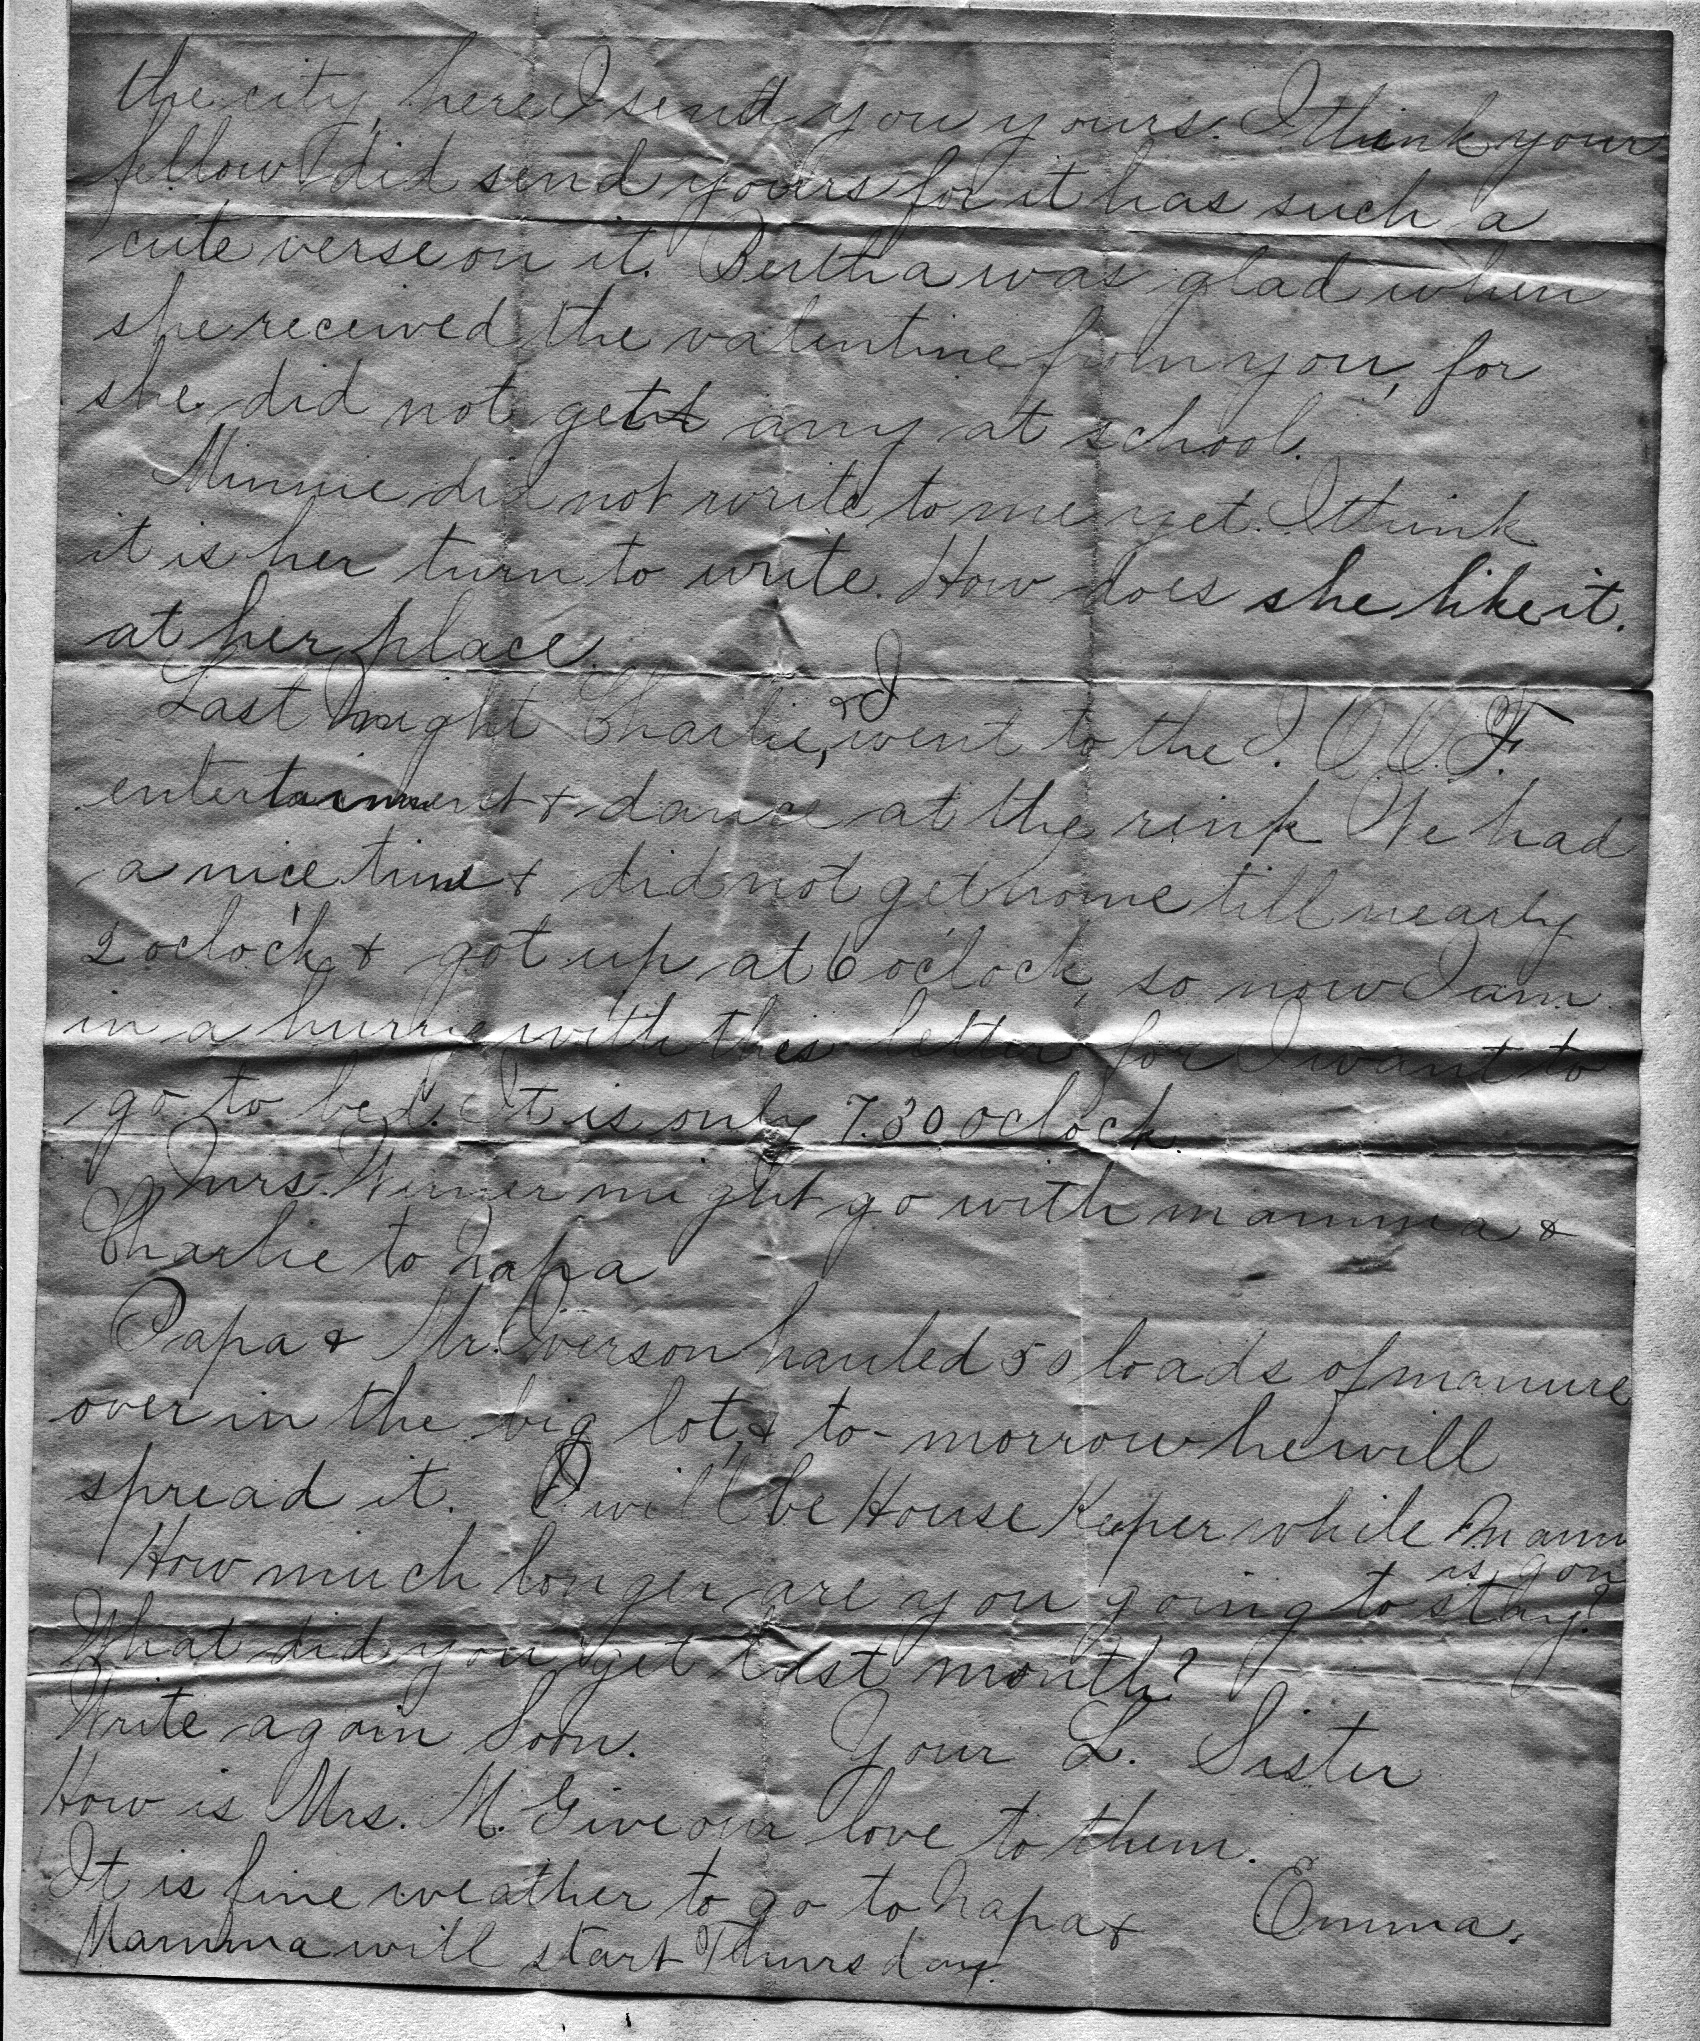 the city, here I send you yours. I think your
fellow did send yours for it has such a
cute verse on it. Bertha was glad when
she received the valentine from you, for
she did not get any at school.
Minnie did not write to me yet. I think
it is her turn to write. How does she like it.
at her place.
Last night Charlie, & I went to the I.O.O.F.
entertainment & dance at the rink We had
a nice time & did not get home till nearly
2 oclock & got up at 6 o'clock, so now I am
in a hurry with this letter for I want to
go to bed. It is only 7.30 oclock.
Mrs. Werner might go with mamma &
Charlie to Napa
Papa & Mr. Iverson hauled 50 loads of manure
over in the big lot & to-morrow he will
spread it. I will be House Keeper while Mam
is gon
How much longer are you going to stay?
What did you get last month?
Write again Soon. Your L. Sister
How is Mrs. M. Give our love to them.
It is fine weather to go to Napa & Emma.
Mamma will start Thursday.